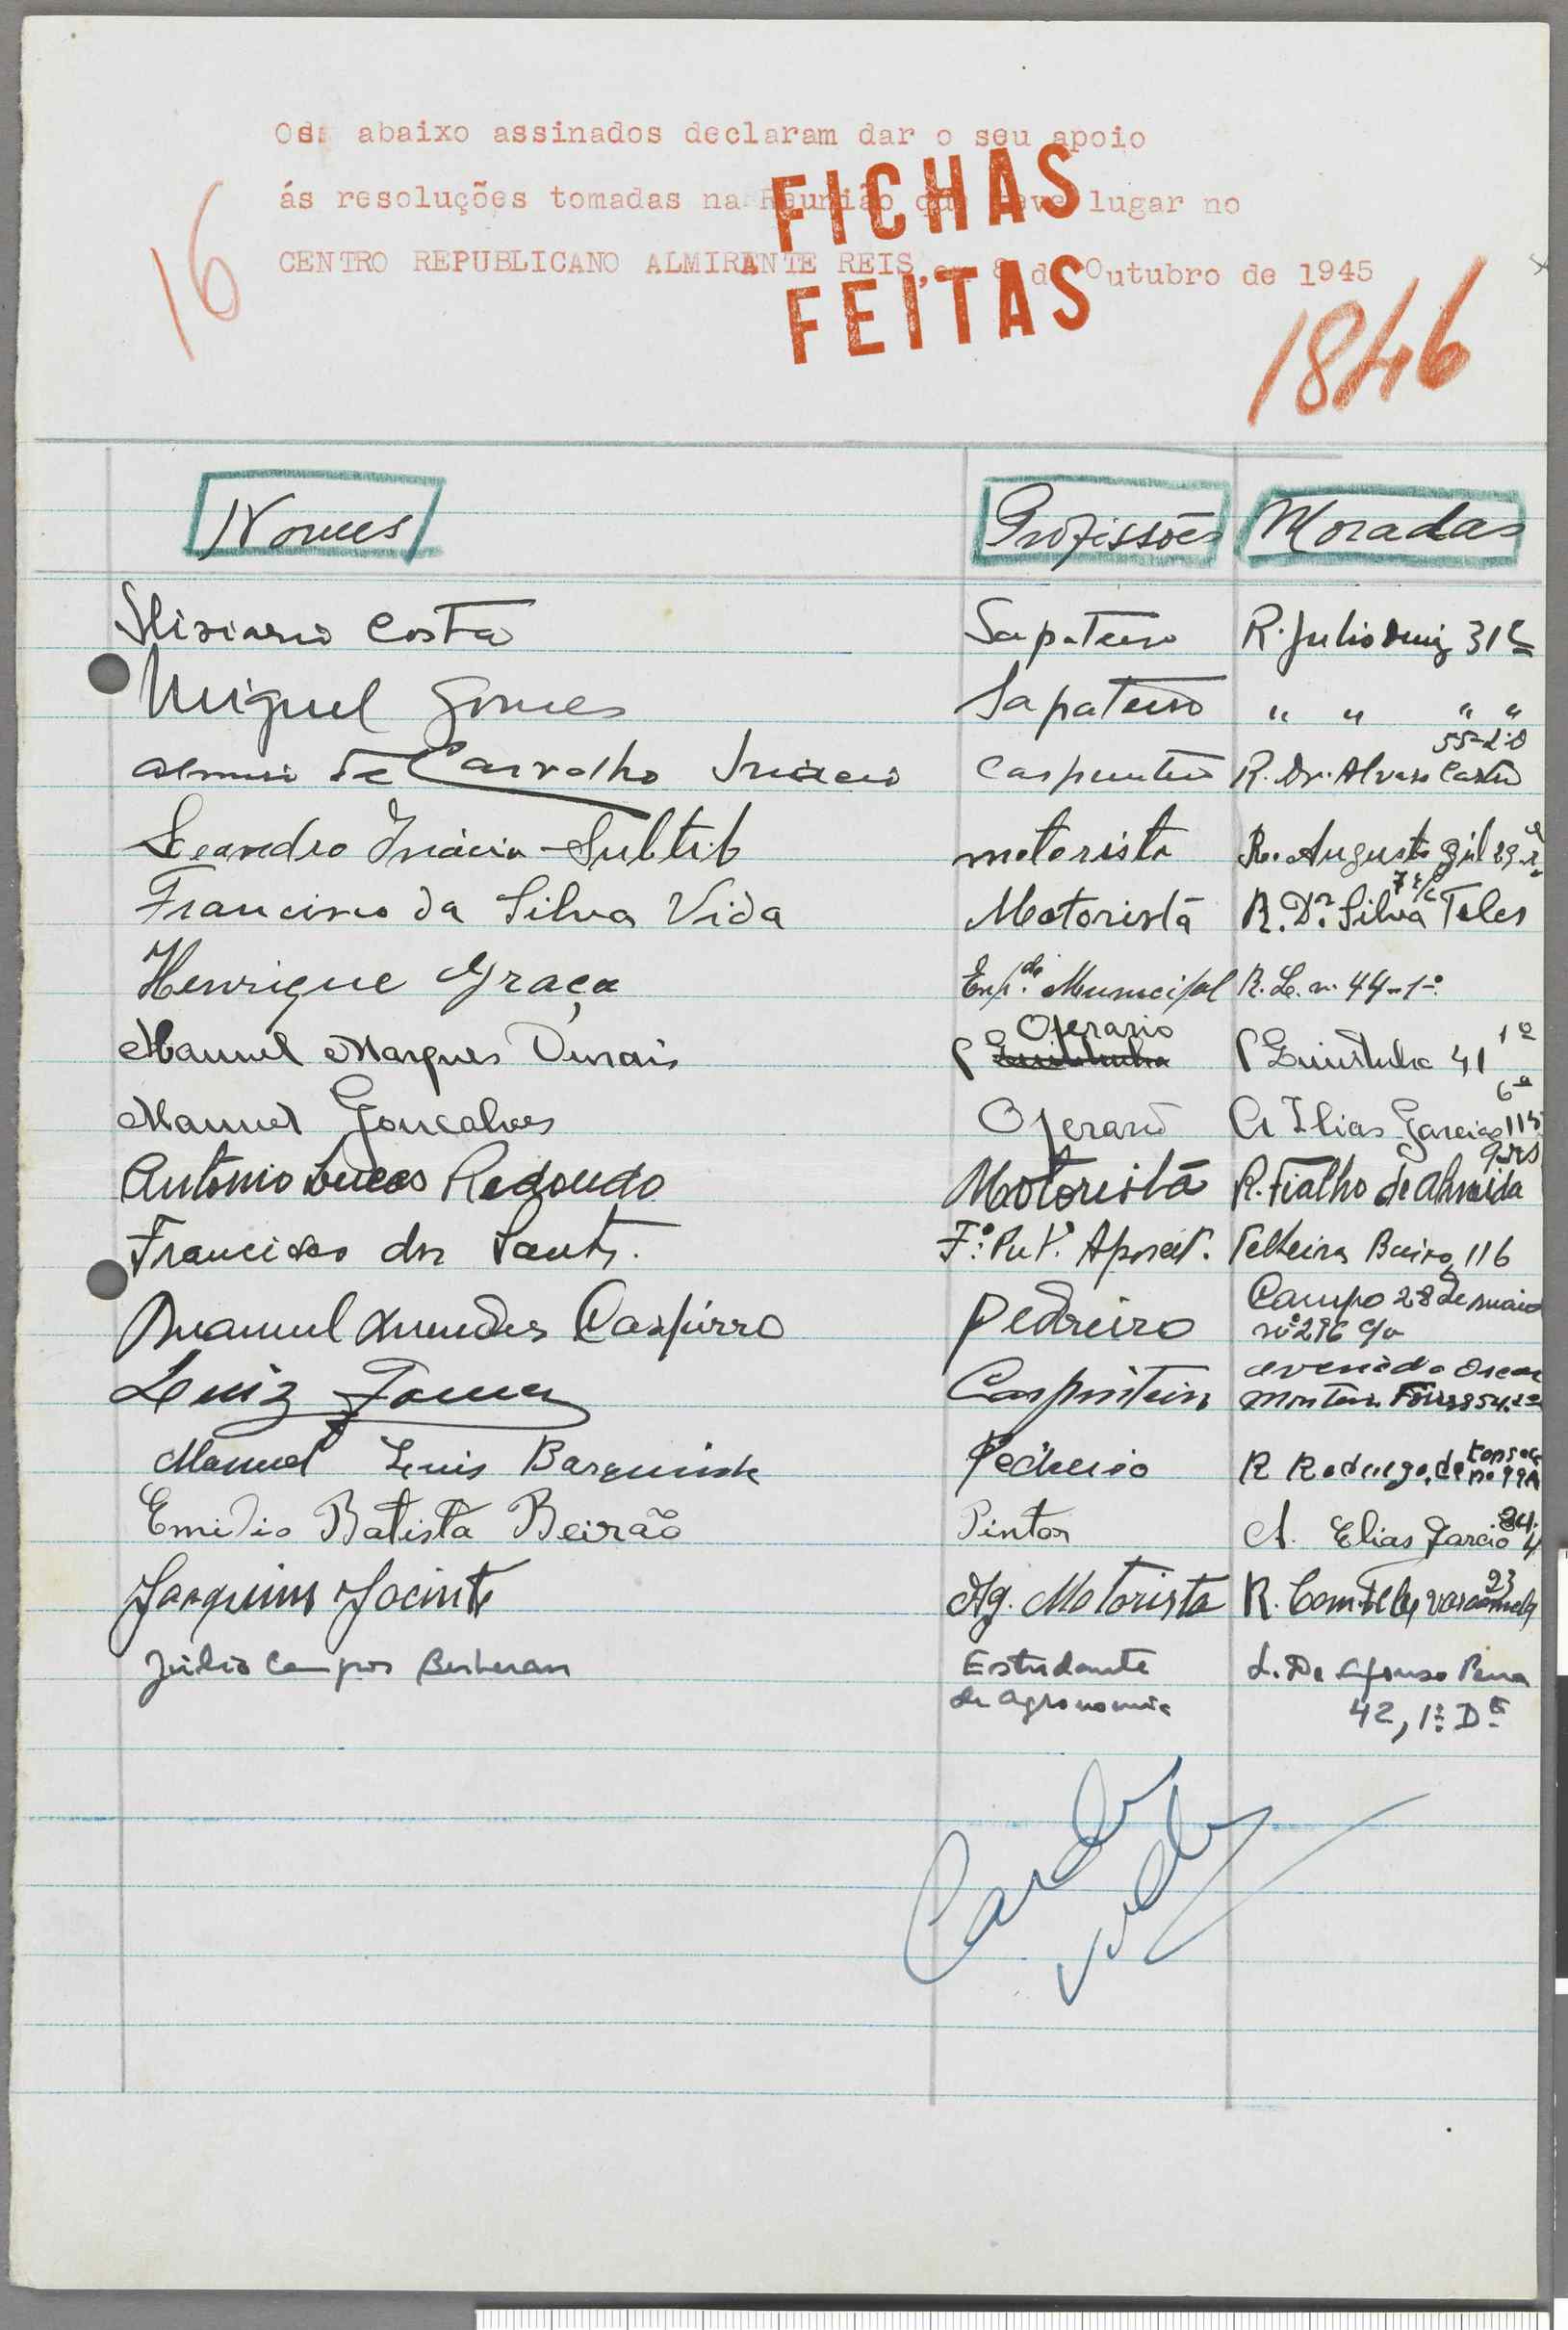 Os abaixo assinados declaram dar o seu apoio
ás resoluções tomadas na Reunião que teve lugar no
CENTRO REPUBLICANO ALMIRANTE REIS, 8 de Outubro de 1945
FICHAS
FEITAS
16
1846
Nomes Profissões Moradas
Costa Sapateiro R. Julio Diniz 31
Miguel Gomes Sapateiro " " " "
55-2.º
de Carvalho Inacio Carpinteiro R. Dr. Alvaro Castro
Leandro Inácio Subtil motorista R. Augusto Gil 29
7 r/c
Francisco da Silva Vida Motorista R. Dr. Silva Teles
Henrique Graça Emp.do Municipal R. L. n. 44-1º
Operario 1º
Manuel Marques Durais 41
6º
Manuel Gonçalves Operario A Elias Garcia 115
Antonio Lucas Redondo Motorista R. Fialho de Almeida
Francisco dos Santos. F.º Pub.º Aposet. Telheiras Baixo, 116
Manuel Mendes Caspirro Pedreiro Campo 28 de maio
nº 296 c/v
Luiz Gomes Carpinteiro avenida Oscar
Monteiro Torres 54.2º
Manuel Luis Barquinha Pedreiro R Rodrigo da Fonseca
nº 99A
Emidio Batista Beirão Pintor A. Elias Garcia 84.
4
Joaquim Jacinto Ag. Motorista R. 23
Júlio Campos Estudante L. Dr Afonso Pena
de agronomia 42, 1º Dº